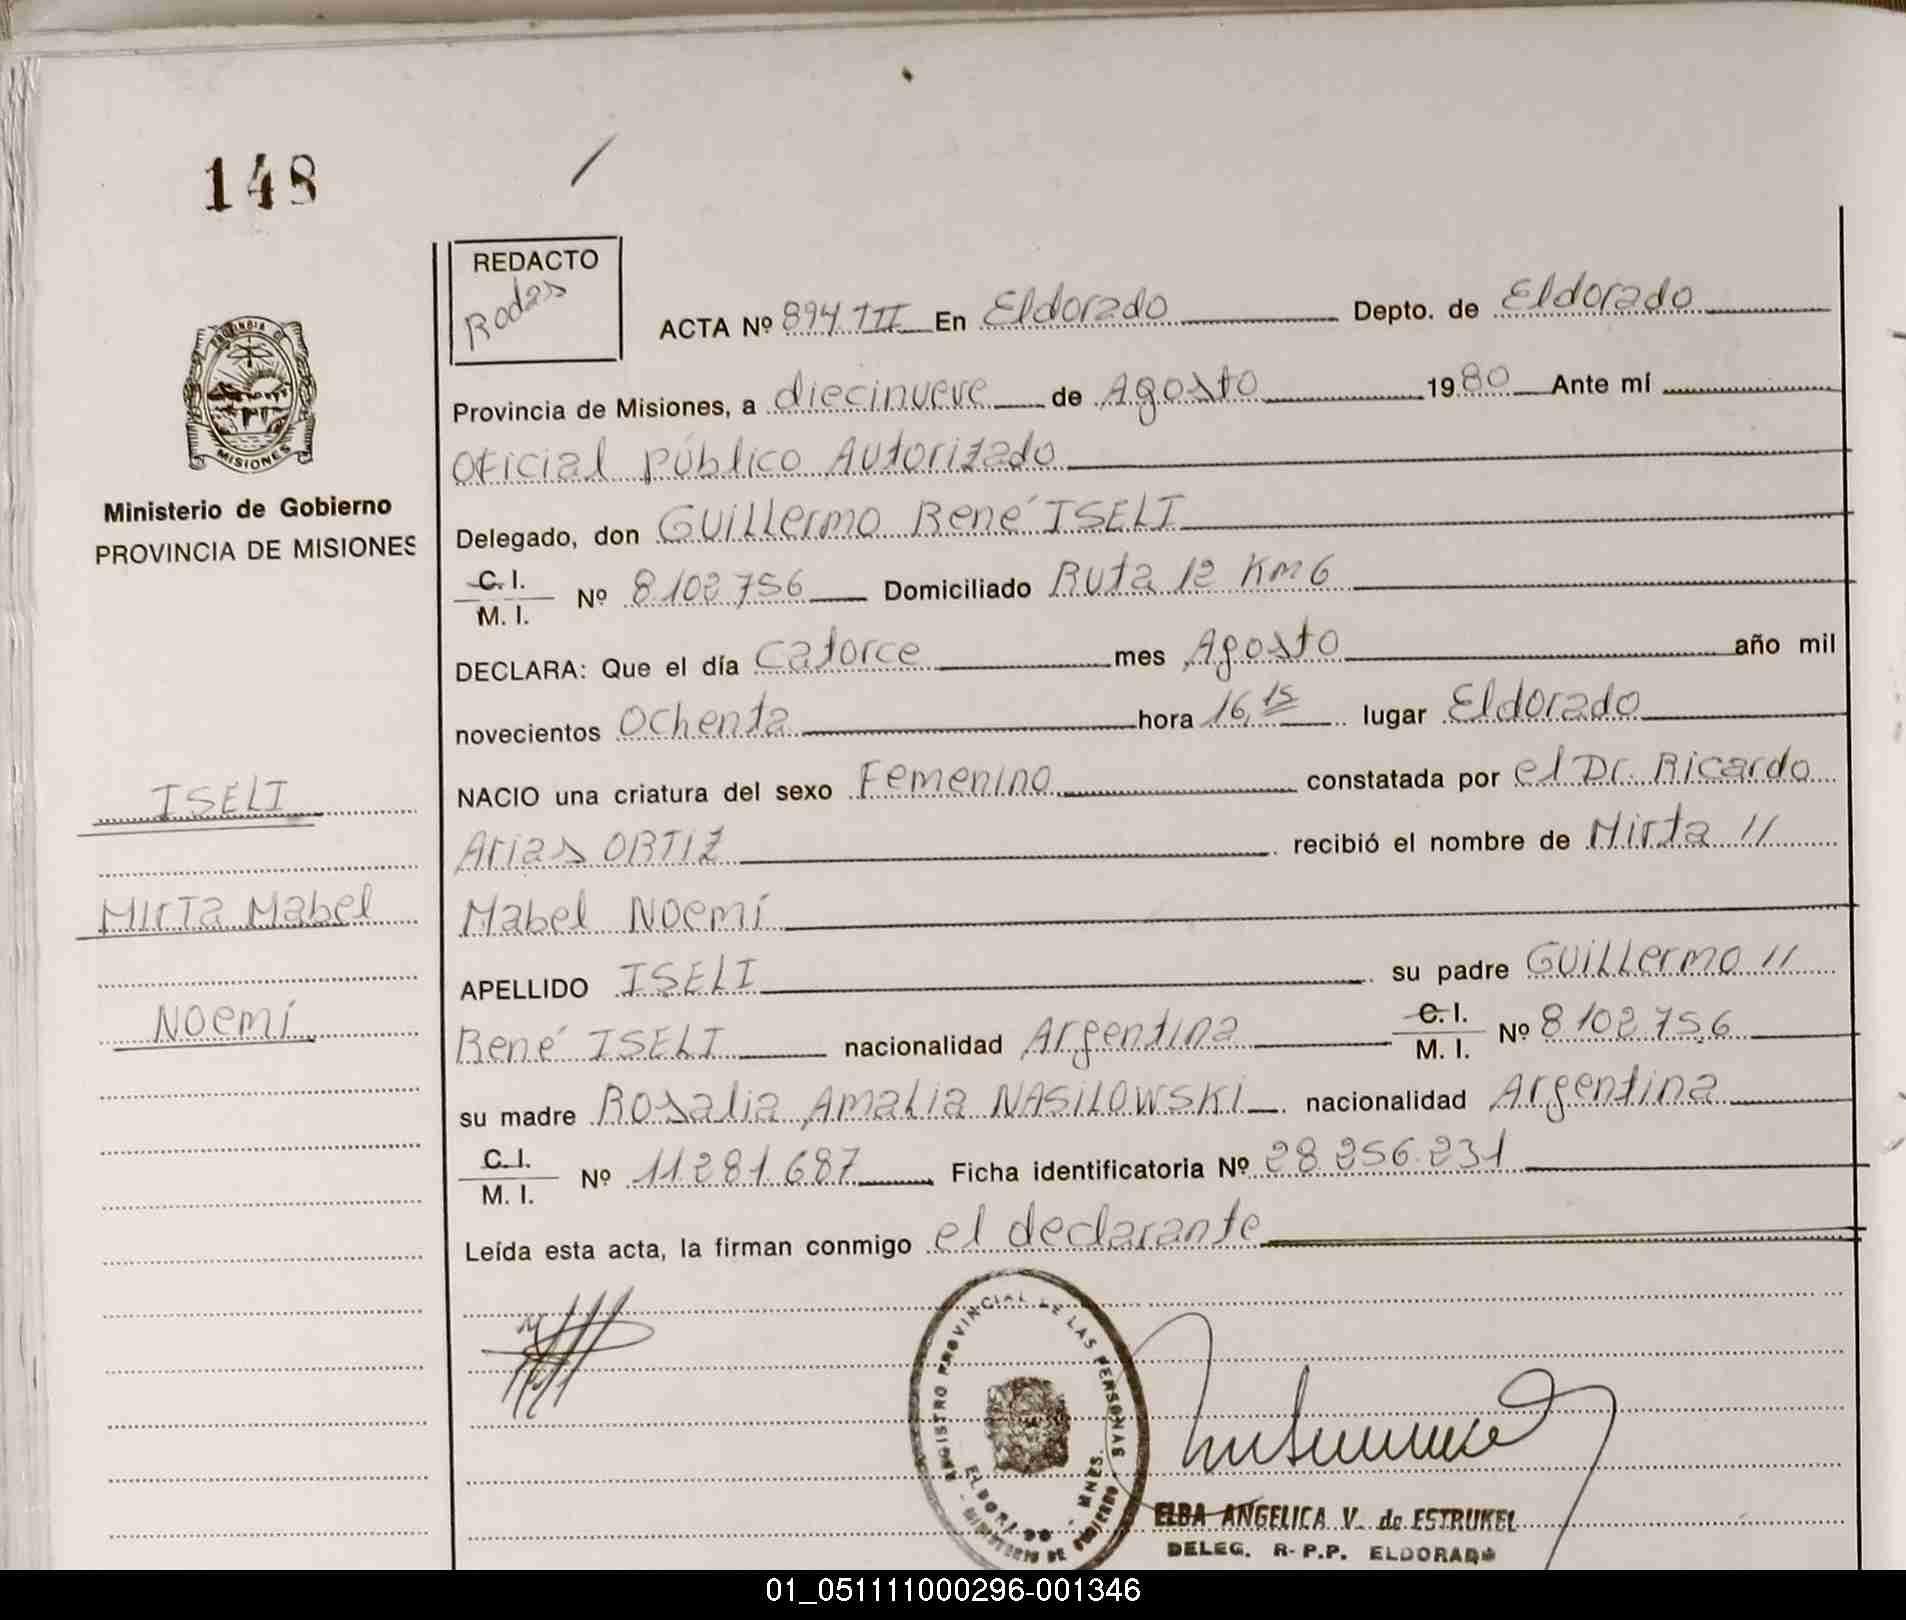 148
REDACTO
Rodas
ACTA Nº 894 III En Eldorado Depto. de Eldorado
Provincia de Misiones, a diecinueve de Agosto 1980 Ante mí
Oficial público Autorizado
Delegado, don Guillermo René ISELI
C. I. M. I. Nº 8.102.756 Domiciliado Ruta 12 Km 6
DECLARA: Que el día Catorce mes Agosto año mil
novecientos Ochenta hora 16,15 lugar Eldorado
NACIO una criatura del sexo Femenino constatada por el Dr. Ricardo
Arias ORTIZ recibió el nombre de Mirta //
Mabel Noemí
APELLIDO ISELI su padre Guillermo //
René ISELI nacionalidad Argentina C. I. M. I. Nº 8.102.756
su madre Rosalia Amalia NASILOWSKI nacionalidad Argentina
C. I. M. I. Nº 11.281.687 Ficha identificatoria Nº 28.256.231
Leída esta acta, la firman conmigo el declarante
PROVINCIA DE
MISIONES
Ministerio de Gobierno
PROVINCIA DE MISIONES
ISELI
Mirta Mabel
Noemí
REGISTRO PROVINCIAL DE LAS PERSONAS
ELDORADO - MNES.
MINISTERIO DE GOBIERNO
ELBA ANGELICA V. de ESTRUKEL
DELEG. R-P.P. ELDORADO
01_051111000296-001346